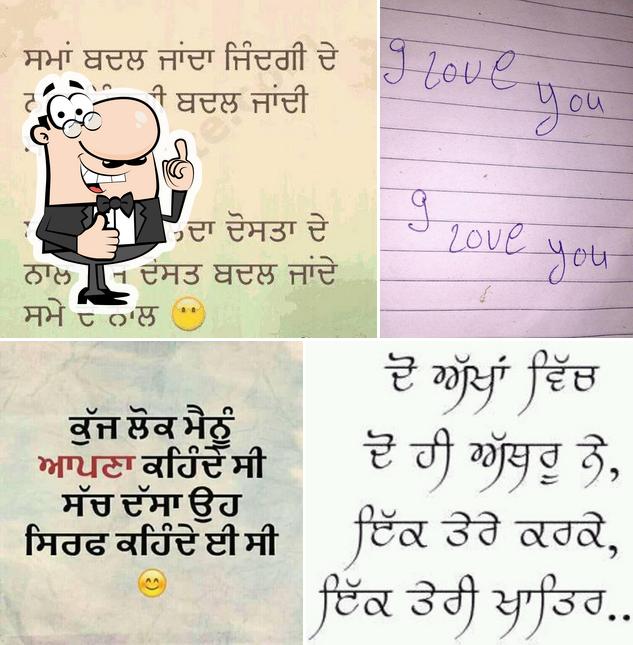 ਸਮਾਂ ਬਦਲ ਜਾਂਦਾ ਜਿੰਦਗੀ ਦੇ
ਬਦਲ ਜਾਂਦੀ
ਦੋਸਤਾ ਦੇ
ਨਾਲ ਦੋਸਤ ਬਦਲ ਜਾਂਦੇ
ਸਮੇ ਦੇ ਨਾਲ
I love you
I love you
ਕੁੱਜ ਲੋਕ ਮੈਨੂੰ
ਆਪਣਾ ਕਹਿੰਦੇ ਸੀ
ਸੱਚ ਦੱਸਾ ਉਹ
ਸਿਰਫ ਕਹਿੰਦੇ ਈ ਸੀ
ਦੋ ਅੱਖਾਂ ਵਿੱਚ
ਦੋ ਹੀ ਅੱਥਰੂ ਨੇ,
ਇੱਕ ਤੇਰੇ ਕਰਕੇ,
ਇੱਕ ਤੇਰੀ ਖਾਤਿਰ..